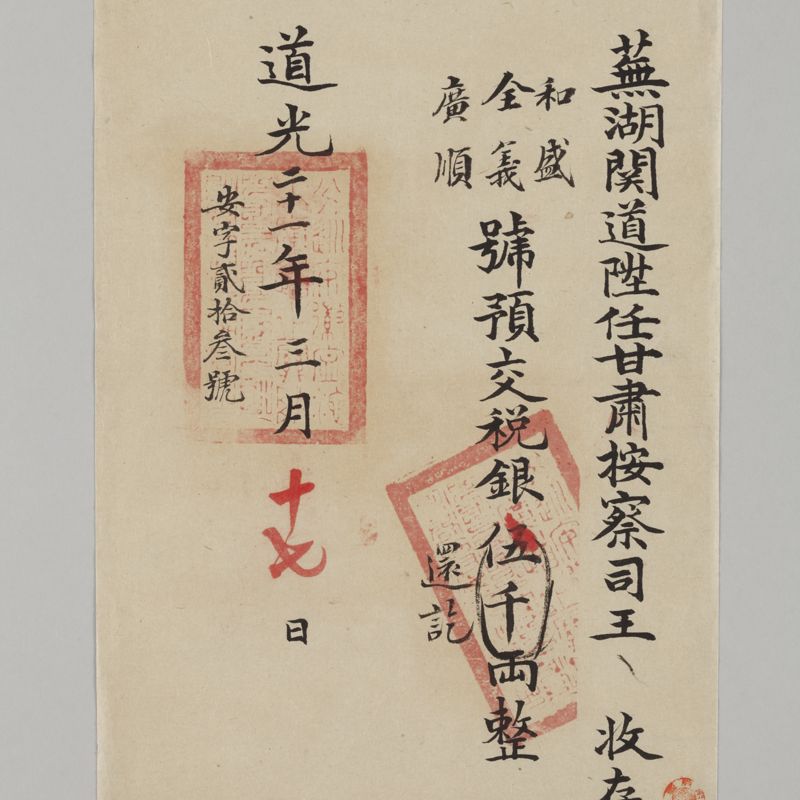 蕪湖関道陞任甘肅按察司王、收存
和盛
全義
廣順
號預交税銀伍千両整
還訖
道光二十一年三月十七日
安字貳拾叄號